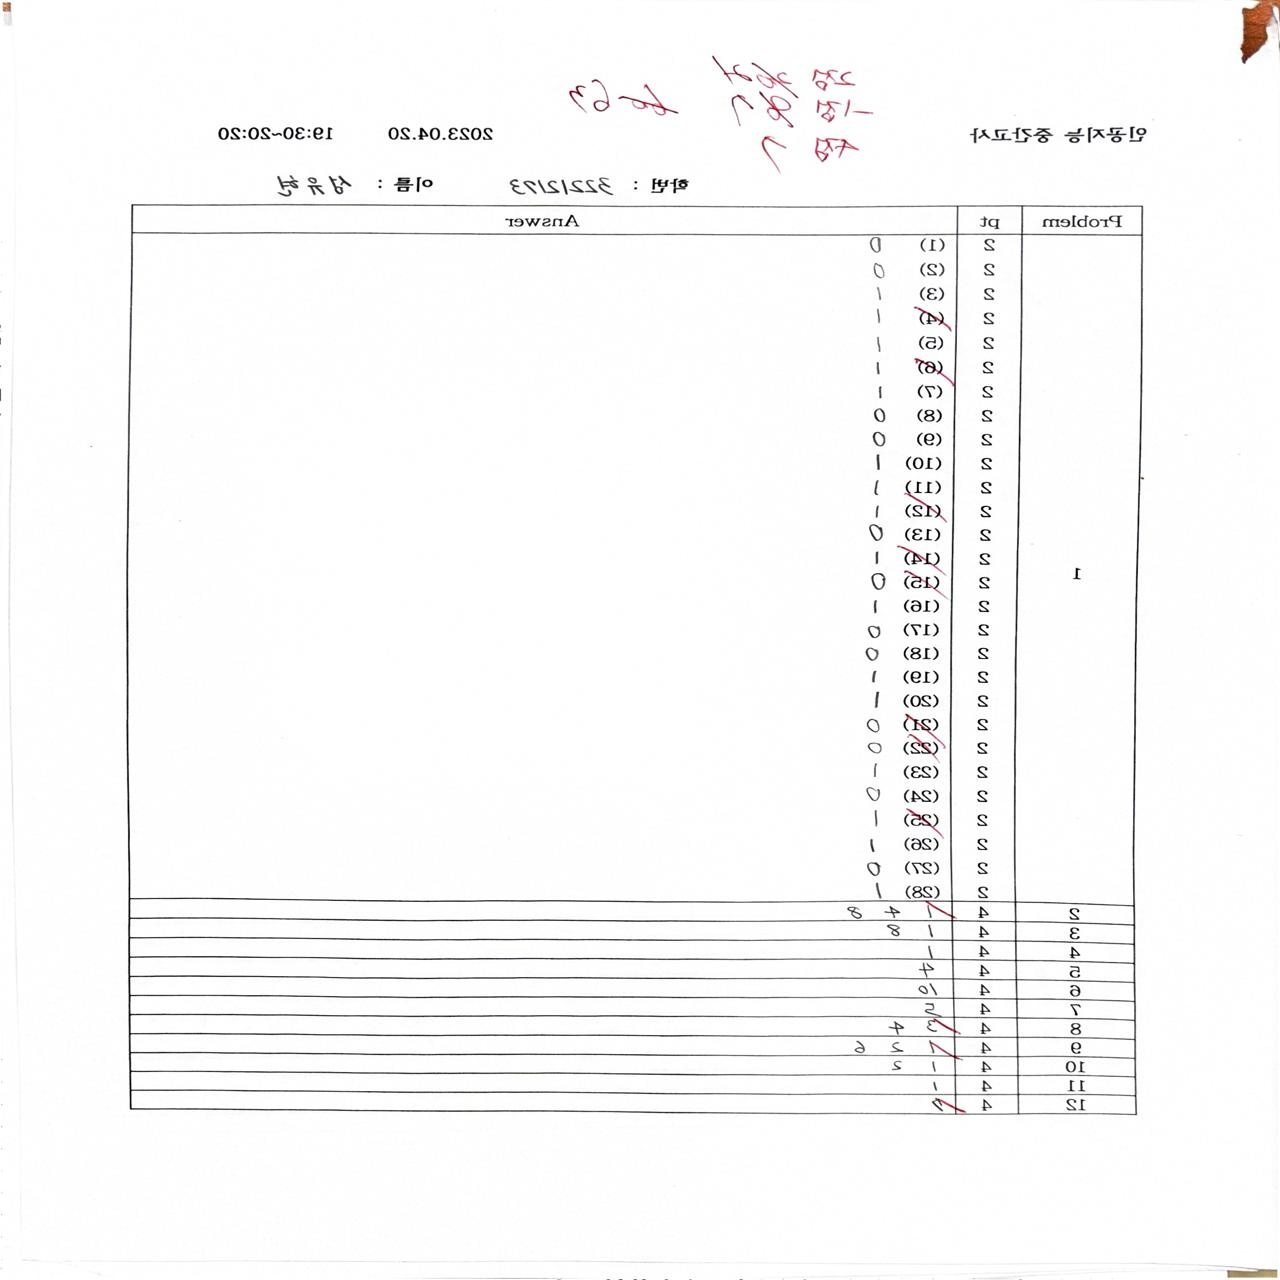 2점
1점
4점 7
63
인공지능 중간고사 2023.04.20 19:30~20:20
학번 : 32212173 이름 : 성유현
Problem pt Answer
1
2 (1) 0
2 (2) 0
2 (3) 1
2 (4) 1
2 (5) 1
2 (6) 1
2 (7) 1
2 (8) 0
2 (9) 0
2 (10) 1
2 (11) 1
2 (12) 1
2 (13) 0
2 (14) 1
2 (15) 0
2 (16) 1
2 (17) 0
2 (18) 0
2 (19) 1
2 (20) 1
2 (21) 0
2 (22) 0
2 (23) 1
2 (24) 0
2 (25) 1
2 (26) 1
2 (27) 0
2 (28) 1
2 4 1 4 8
3 4 1 8
4 4 1
5 4 4
6 4 10
7 4
8 4 3 4
9 4 1 2 6
10 4 1 2
11 4 1
12 4